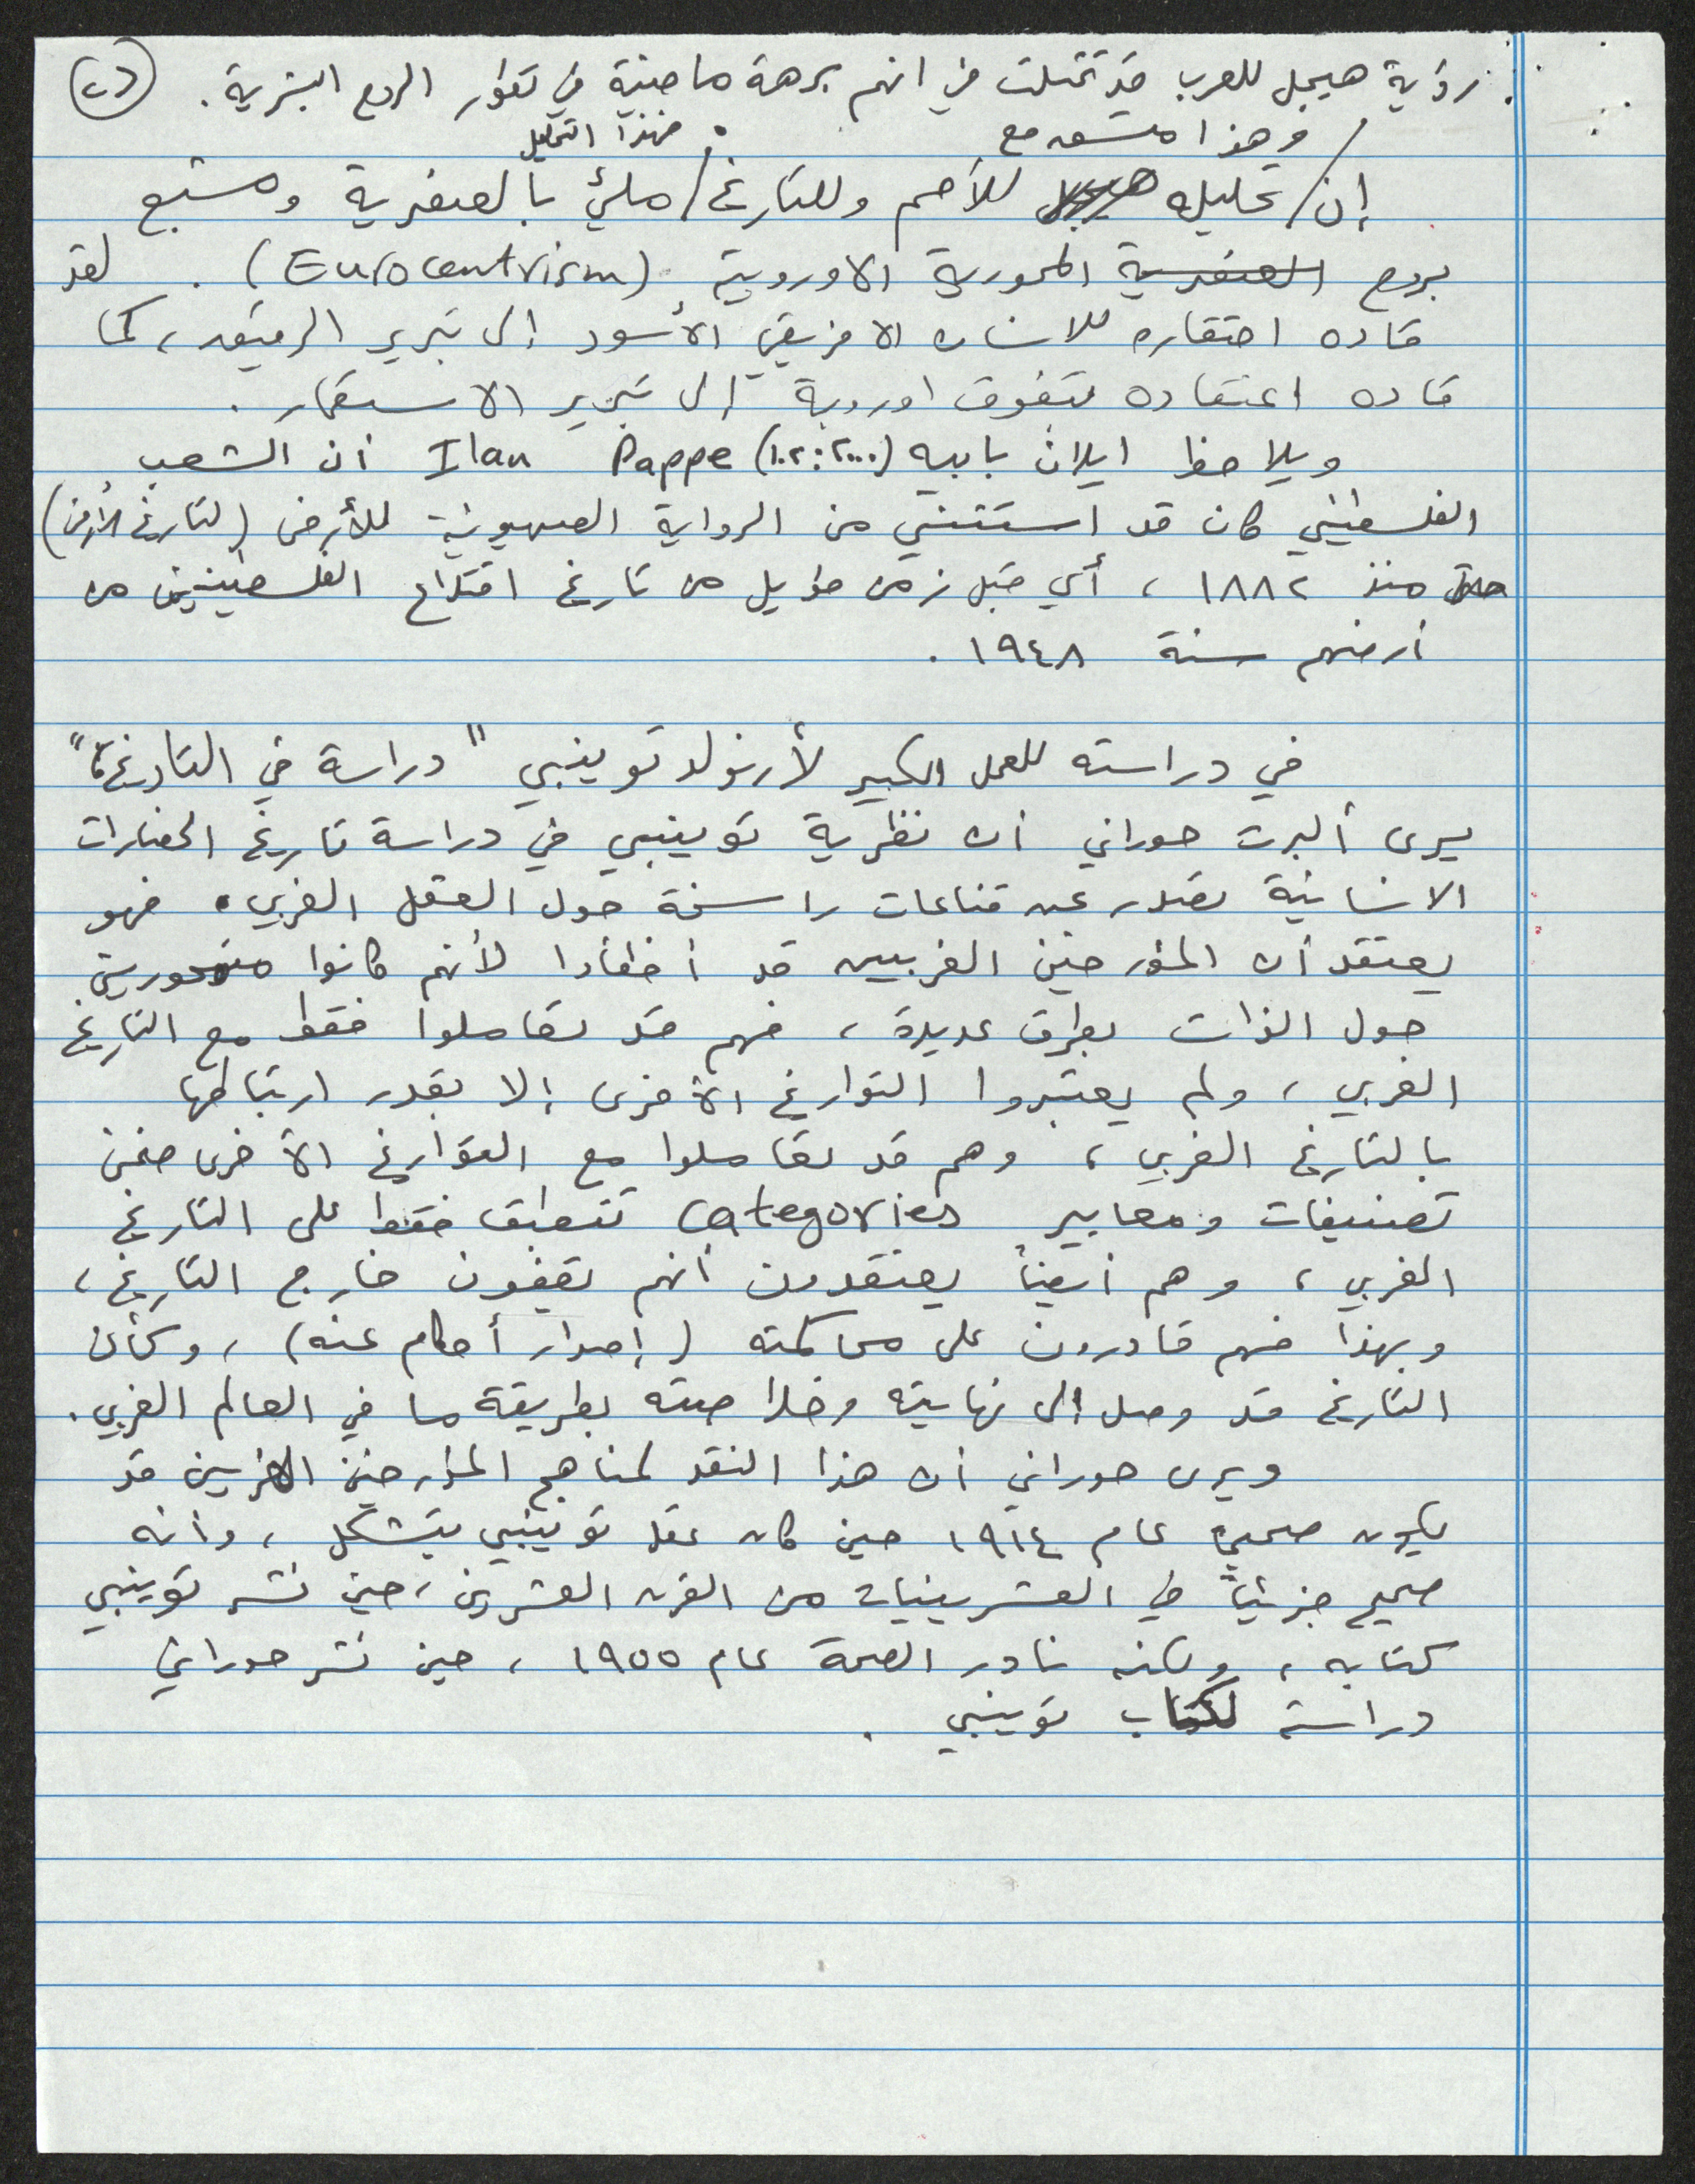 رؤية هيجل للعرب قد تمثلت في انهم برهة ماضية في تطور الروح البشرية. (٢)
وهذا متسق مع . فهذا التحليل
إن/ تحليله للأمم وللتاريخ/ مليئ بالعنصرية ومشبع
بروح العنصرية المحورية الاوروبية (Eurocentrism). لقد
قاده احتقاره للانسان الافريقي الأسود إلى تبرير الرقيق، كما
قاده اعتقاده بتفوق اوروبة إلى تبرير الاستعمار.
ويلاحظ ايلان بابيه Ilan Pappe (٢٠٠٠: ١٠٢) أن الشعب
الفلسطيني كان قد استثني من الرواية الصهيونية للأرض (لتاريخ الأرض)
منذ ١٨٨٢، أي قبل زمن طويل من تاريخ اقتلاع الفلسطينيين من
أرضهم سنة ١٩٤٨.
في دراسته للعمل الكبير لأرنولد توينبي "دراسة في التاريخ"،
يرى ألبرت حوراني أن نظرية توينبي في دراسة تاريخ الحضارات
الانسانية تصدر عن قناعات راسخة حول العقل الغربي. فهو
يعتقد أن المؤرخين الغربيين قد أخطأوا لأنهم كانوا متمحورين
حول الذات بطرق عديدة، فهم قد تعاملوا فقط مع التاريخ
الغربي، ولم يعتبروا التواريخ الأخرى إلا بقدر ارتباطها
بالتاريخ الغربي، وهم قد تعاملوا مع التواريخ الأخرى ضمن
تصنيفات ومعايير categories تنطبق فقط على التاريخ
الغربي، وهم أيضاً يعتقدون أنهم يقفون خارج التاريخ،
وبهذا فهم قادرون على محاكمته (إصدار أحكام عنه)، وكأن
التاريخ قد وصل إلى نهايته وخلاصته بطريقة ما في العالم الغربي.
ويرى حوراني أن هذا النقد لمناهج المؤرخين الغربيين قد
يكون صحيحا عام ١٩١٤ حين كان عقل توينبي يتشكل، وأنه
صحيح جزئياً في العشرينيات من القرن العشرين، حين نشر توينبي
كتابه، ولكنه نادر الصحة عام ١٩٥٥، حين نشر حوراني
دراسته لكتاب توينبي.